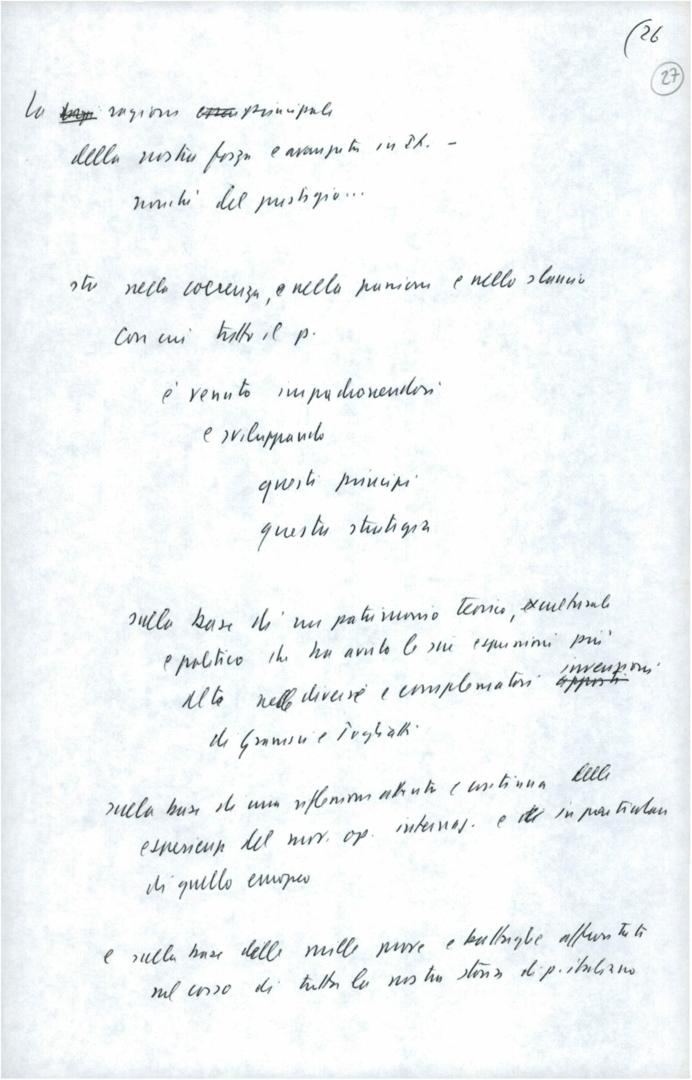 (26
27
La ragione principale
della nostra forza e avanzata in It. –
nonché del prestigio...
sta nella coerenza, e nella passione e nello slancio
con cui tutto il p.
è venuto impadronendosi
e sviluppando
questi principi
questa strategia
sulla base di un patrimonio teorico, culturale
e politico che ha avuto le sue espressioni più
alte nelle diverse e complementari invenzioni
di Gramsci e Togliatti
sulla base di una riflessione attenta e continua delle
esperienze del mov. op. internaz. e in particolare
di quello europeo
e sulla base delle mille prove e battaglie affrontate
nel corso di tutta la nostra storia di p. italiano